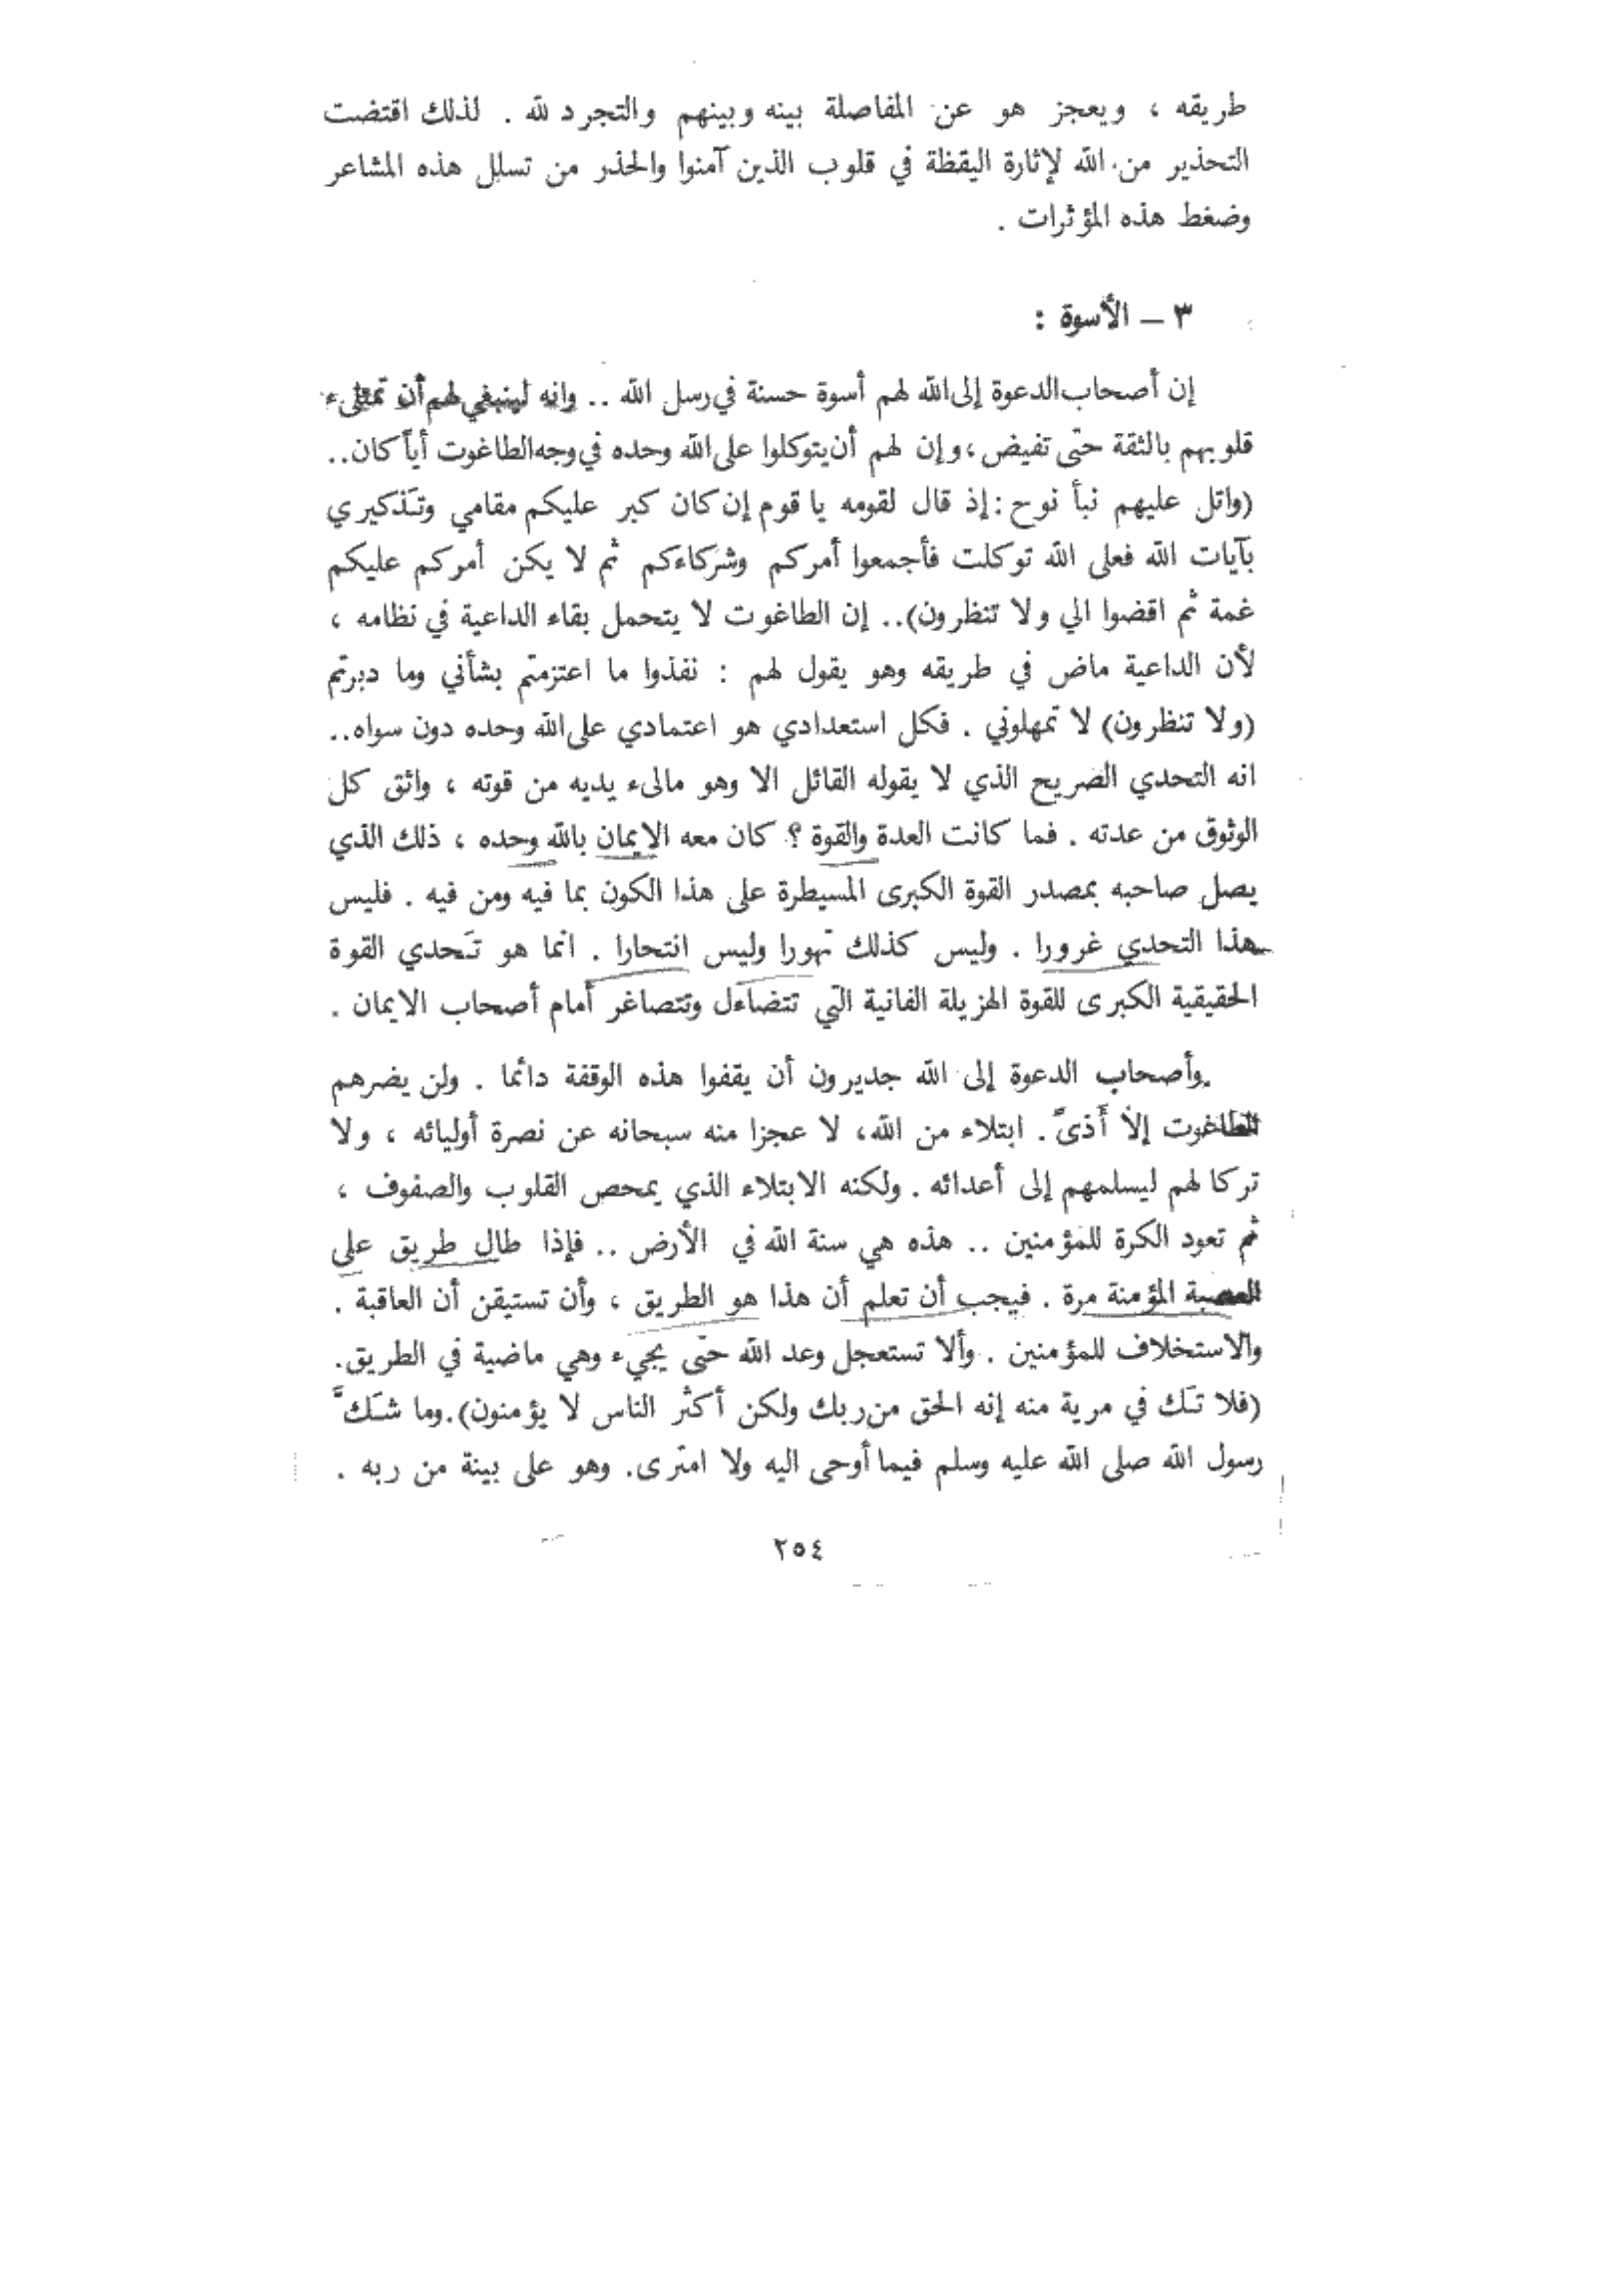 طريقه ، ويعجز هو عن المفاصلة بينه وبينهم والتجرد لله . لذلك اقتضت
التحذير من الله لإثارة اليقظة في قلوب الذين آمنوا والحذر من تسلل هذه المشاعر
وضغط هذه المؤثرات .
٣ – الأسوة :
إن أصحاب الدعوة إلى الله لهم أسوة حسنة في رسل الله .. وانه لينبغي لهم أن تمتلىء
قلوبهم بالثقة حتى تفيض ، وإن لهم أن يتوكلوا على الله وحده في وجه الطاغوت أياً كان ..
(واتل عليهم نبأ نوح : إذ قال لقومه يا قوم إن كان كبر عليكم مقامي وتَذكيري
بآيات الله فعلى الله توكلت فأجمعوا أمركم وشركاءكم ثم لا يكن أمركم عليكم
غمة ثم اقضوا الي ولا تنظرون) .. إن الطاغوت لا يتحمل بقاء الداعية في نظامه ،
لأن الداعية ماض في طريقه وهو يقول لهم : نفذوا ما اعتزمتم بشأني وما دبرتم
(ولا تنظرون) لا تمهلوني . فكل استعدادي هو اعتمادي على الله وحده دون سواه ..
انه التحدي الصريح الذي لا يقوله القائل الا وهو مالىء يديه من قوته ، واثق كل
الوثوق من عدته . فما كانت العدة والقوة ؟ كان معه الإيمان بالله وحده ، ذلك الذي
يصل صاحبه بمصدر القوة الكبرى المسيطرة على هذا الكون بما فيه ومن فيه . فليس
هذا التحدي غرورا . وليس كذلك تهورا وليس انتحارا . انما هو تَحدي القوة
الحقيقية الكبرى للقوة الهزيلة الفانية التي تتضاءل وتتصاغر أمام أصحاب الايمان .
وأصحاب الدعوة إلى الله جديرون أن يقفوا هذه الوقفة دائما . ولن يضرهم
الطاغوت إلاّ أَذىً . ابتلاء من الله ، لا عجزا منه سبحانه عن نصرة أوليائه ، ولا
تركا لهم ليسلمهم إلى أعدائه . ولكنه الابتلاء الذي يمحص القلوب والصفوف ،
ثم تعود الكرة للمؤمنين .. هذه هي سنة الله في الأرض .. فإذا طال طريق على
العصبة المؤمنة مرة . فيجب أن تعلم أن هذا هو الطريق ، وأن تستيقن أن العاقبة .
والاستخلاف للمؤمنين . وألا تستعجل وعد الله حتى يجيء وهي ماضية في الطريق .
(فلا تَك في مرية منه إنه الحق من ربك ولكن أكثر الناس لا يؤمنون) . وما شَكَّ
رسول الله صلى الله عليه وسلم فيما أوحى اليه ولا امترى . وهو على بينة من ربه .
٢٥٤